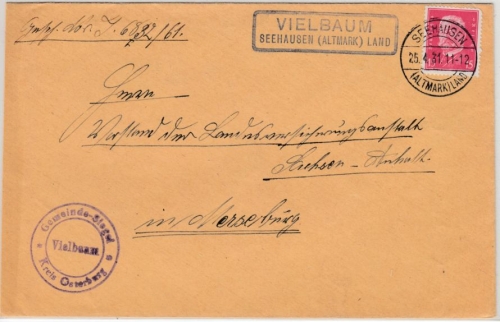 VIELBAUM
SEEHAUSEN (ALTMARK) LAND
SEEHAUSEN
25.4.31.11-12
(ALTMARK) LAND
Herrn
Vorstand der Landesversicherungsanstalt
Sachsen-Anhalt
in Merseburg
Gemeinde-Siegel
Vielbaum
Kreis Osterburg